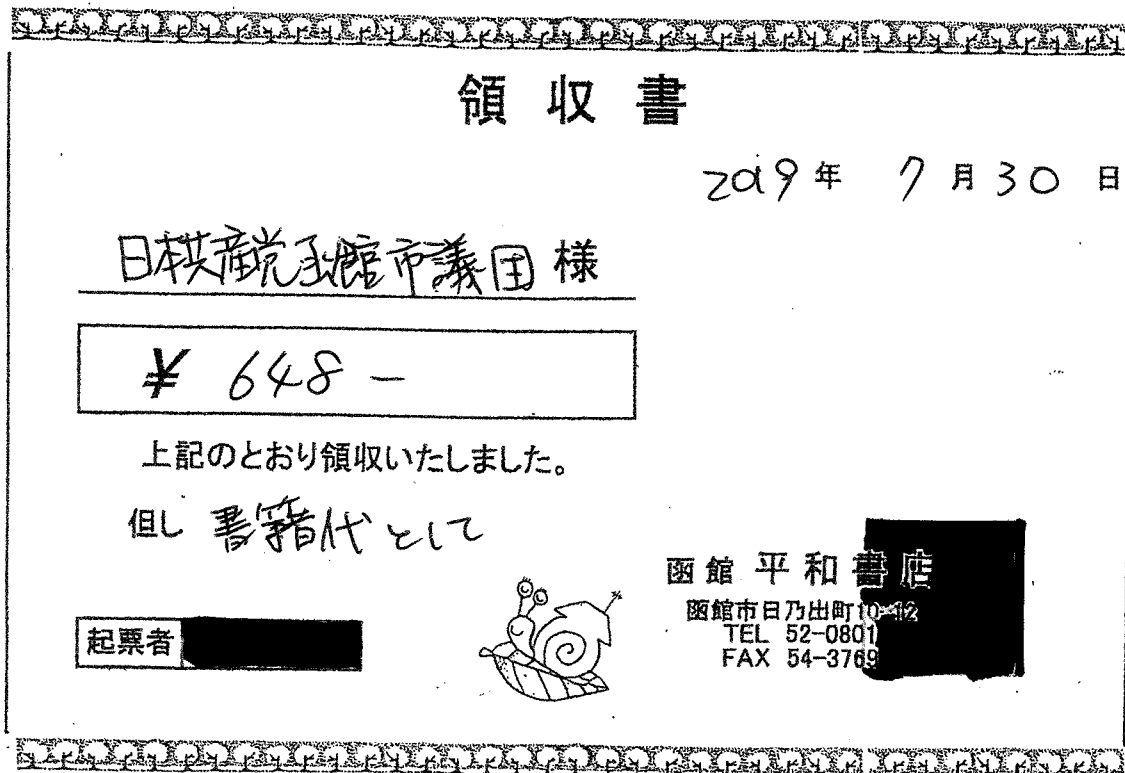 領収書
2019年 7月30日
日本共産党函館市議団 様
¥ 648 -
上記のとおり領収いたしました。
但し 書籍代として
函館 平和書店
函館市日乃出町10-12
TEL 52-0801
FAX 54-3769
起票者